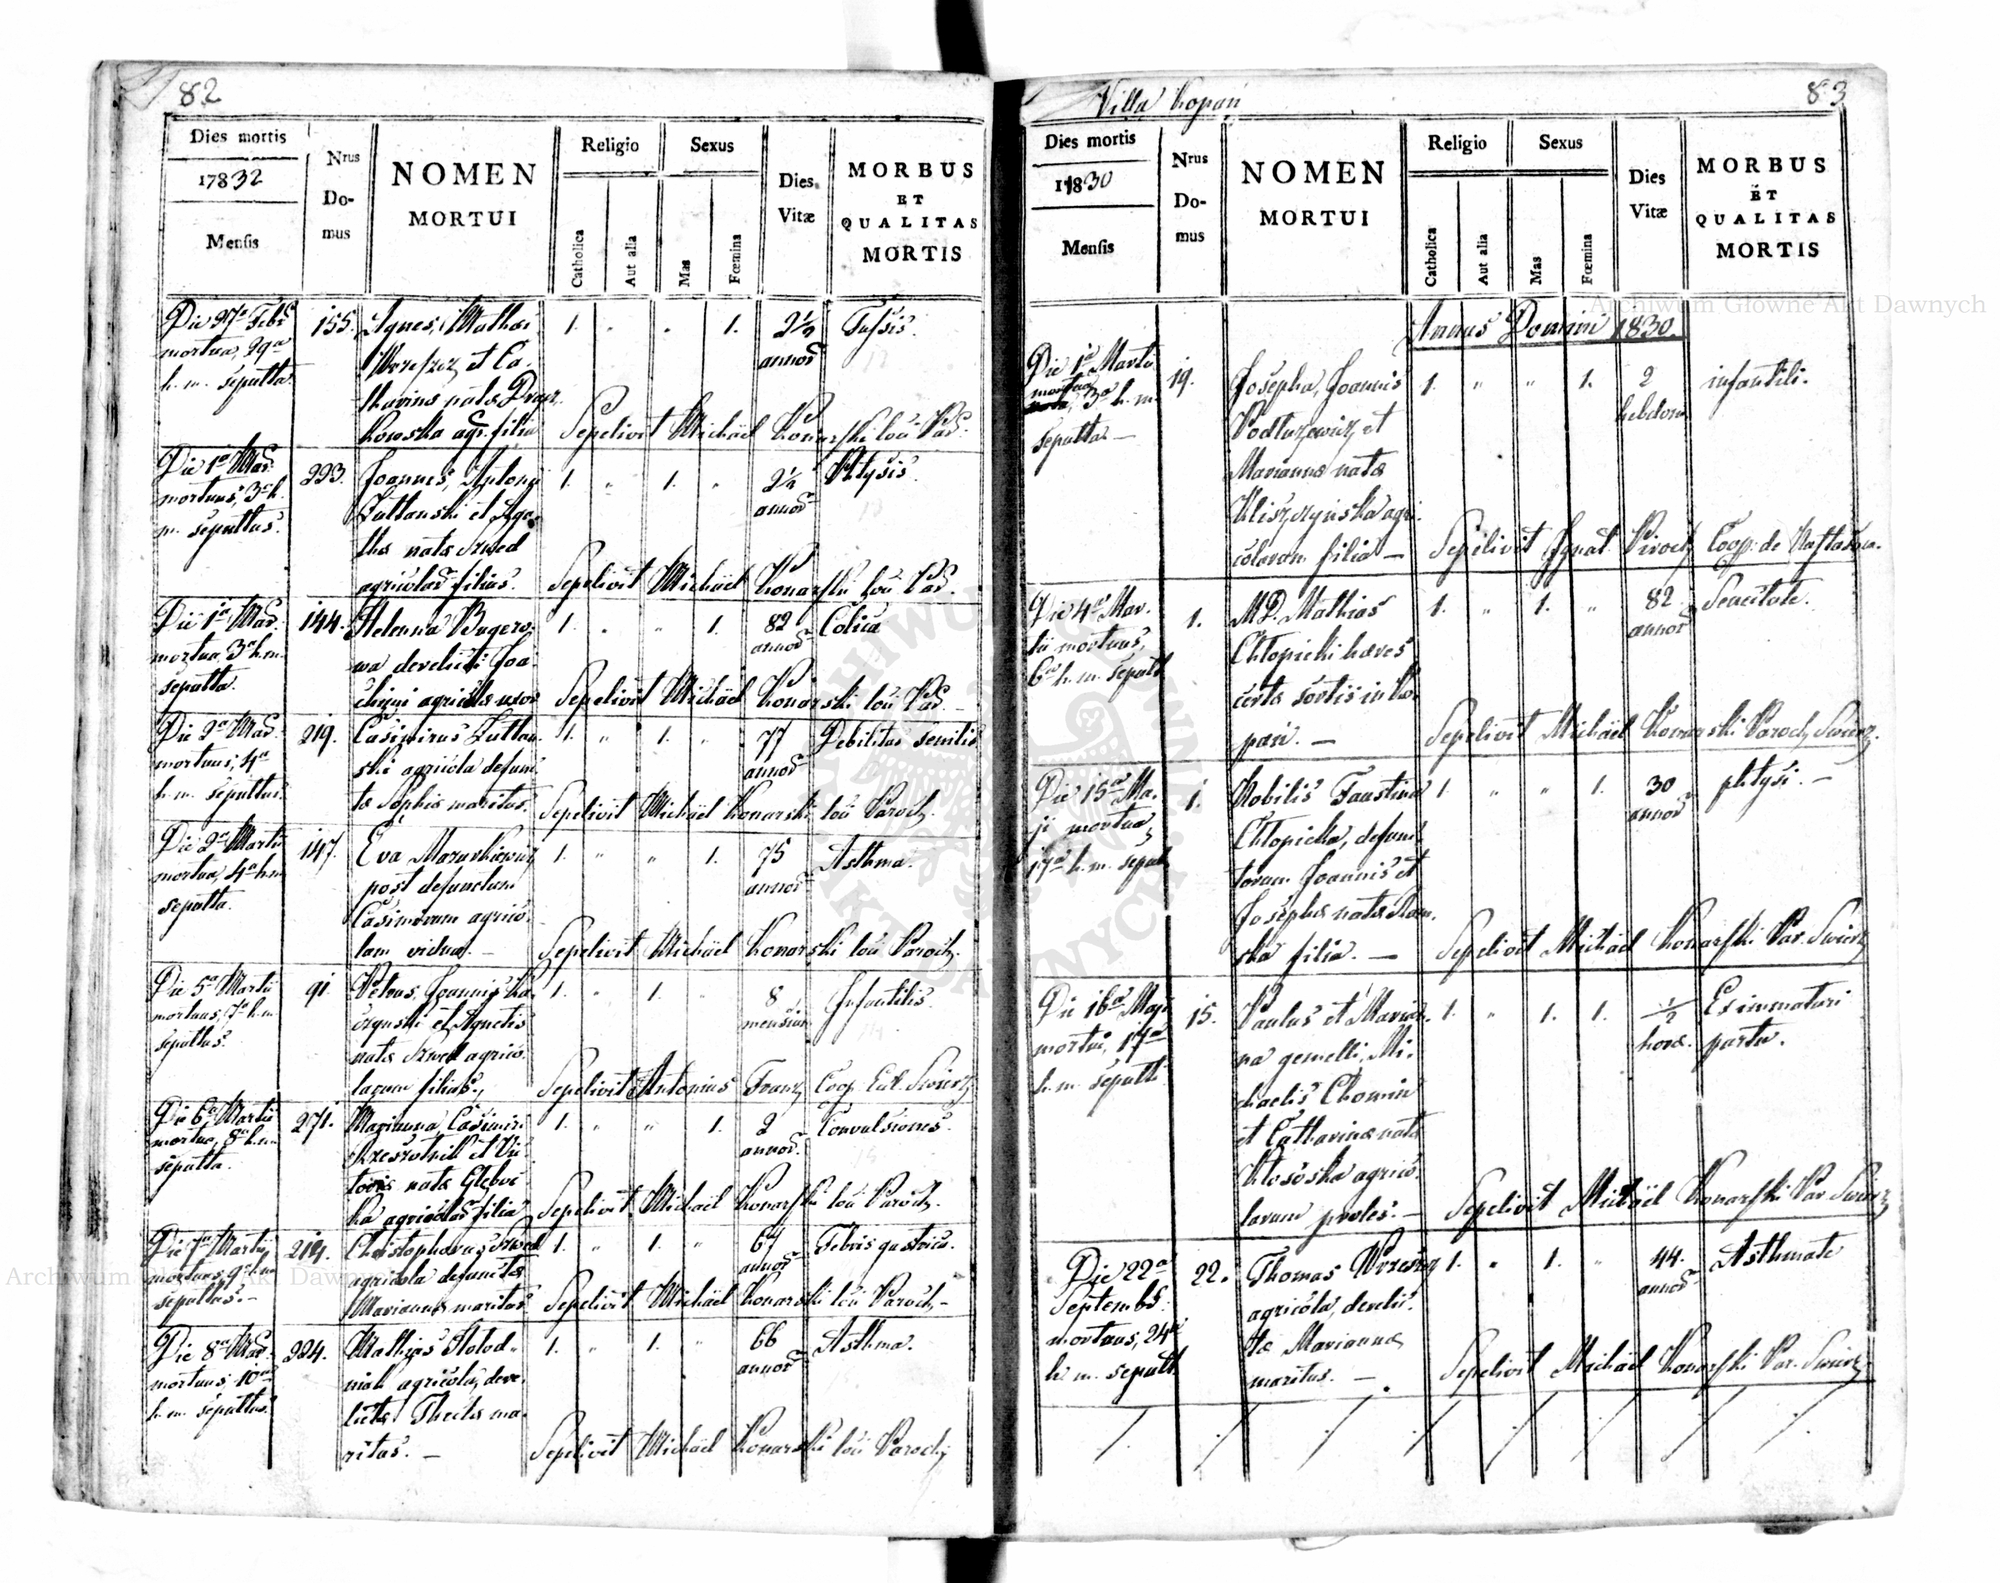 82
Dies mortis
1832
Mensis
Nrus
Do-
mus
NOMEN
MORTUI
Religio
Catholica
Aut alia
Sexus
Mas
Fœmina
Dies
Vitæ
MORBUS
ET
QUALITAS
MORTIS
Die 27a Febr
mortua, 29a
h. m. sepulta
155.
Agnes, Mathæi
et Ca-
tharinæ natæ
agr. filia
1. " " 1.
2½
annor
Tussis.
Sepelivit Michaël Konarski loci Par.
Die 1a Mar.
mortuus, 3a h.
m. sepultus.
223.
Joannes, Antonii
Zultanski et Aga-
thæ natæ Szwed
agricolar filius.
1. " 1. "
2½
annor
Phtysis.
Sepelivit Michaël Konarski loci Par.
Die 1a Mar.
mortua, 3a h. m.
sepulta.
144.
Helenna
wa derelicti Joa-
chimi agricolæ uxor
1. " " 1.
82
annor
Colica
Sepelivit Michaël Konarski loci Par.
Die 2a Mar.
mortuus, 4a
h. m. sepultus.
219.
Casimirus Zultan-
ski agricola defunc-
tæ Sophiæ maritus.
1. " 1. "
77
annor
Debilitas senilis
Sepelivit Michaël Konarski loci Paroch.
Die 2a Martii
mortua, 4a h. m.
sepulta.
147.
Eva Mazurkiewicz
post defunctum
Casimirum agrico-
lam vidua. —
1. " " 1.
75
annor
Asthma.
Sepelivit Michaël Konarski loci Paroch.
Die 5a Martii
mortuus, 7a h. m
sepultus.
91.
Petrus, Joannis Ka-
czynski et Agnetis
natæ Szwed agrico-
larum filius.
1. " 1. "
8
mensium
Infantilis.
Sepelivit Antonius Franz Coop. Swierz
Die 6a Martii
mortua, 8a h. m.
sepulta.
271.
Marianna, Casimiri
et Vic-
toriæ natæ
agricolar filia
1. " " 1.
2
annor.
Convulsiones.
Sepelivit Michaël Konarski loci Paroch.
Die 7a Martii
mortuus, 9a h. m
sepultus. —
219.
Christophorus Szwed
agricola defunctæ
Mariannæ maritus.
1. " 1. "
67
annor
Febris gastrica.
Sepelivit Michaël Konarski loci Paroch. —
Die 8a Mar.
mortuus, 10a
h. m. sepultus.
224.
Mathias Kolod-
niak agricola, dere-
lictæ Theclæ ma-
ritus. —
1. " 1. "
66
annor
Asthma.
Sepelivit Michaël Konarski loci Paroch.
Villa Kopań
83
Dies mortis
1830
Mensis
Nrus
Do-
mus
NOMEN
MORTUI
Religio
Catholica
Aut alia
Sexus
Mas
Fœmina
Dies
Vitæ
MORBUS
ET
QUALITAS
MORTIS
Annus Domini 1830.
Die 1a Martii
mortua, 3a h. m.
sepulta —
19.
Josepha, Joannis
Podluzewicz et
Mariannæ natæ
Kliszczynska agri-
colarum filia —
1. " " 1.
2
hebdom.
infantili.
Sepelivit Ignat. Coop. de
Die 4a Mar-
tii mortuus,
6a h. m. sepult
1.
M. D. Mathias
Chłopicki hæres
certæ sortis in Ko-
pań. —
1. " 1. "
82
annor
Senectute.
Sepelivit Michaël Konarski Paroch. Swierz.
Die 15a Ma-
ji mortua,
17a h. m. sepul.
1.
Nobilis Faustina
Chłopicka, defunc-
torum Joannis et
Josephæ natæ
ska filia. —
1. " " 1.
30
annor
phtysi. —
Sepelivit Michaël Konarski Par. Swierz.
Die 16a Maji
mortui, 17a
h. m. sepulti
15.
Paulus et Marian-
na gemelli, Mi-
chaelis Chomin
et Catharinæ natæ
Klososka agrico-
larum proles. —
1. " 1. 1.
½
horæ.
Ex immaturi
partu.
Sepelivit Michaël Konarski Par. Swierz
Die 22a
Septembr.
mortuus, 24a
h. m. sepult.
22.
Thomas
agricola, derelic-
tæ Mariannæ
maritus. —
1. " 1. "
44.
annor
Asthmate
Sepelivit Michaël Konarski Par. Swierz.
Archiwum Główne Akt Dawnych
Archiwum Główne Akt Dawnych
ARCHIWUM GŁÓWNE
AKT DAWNYCH